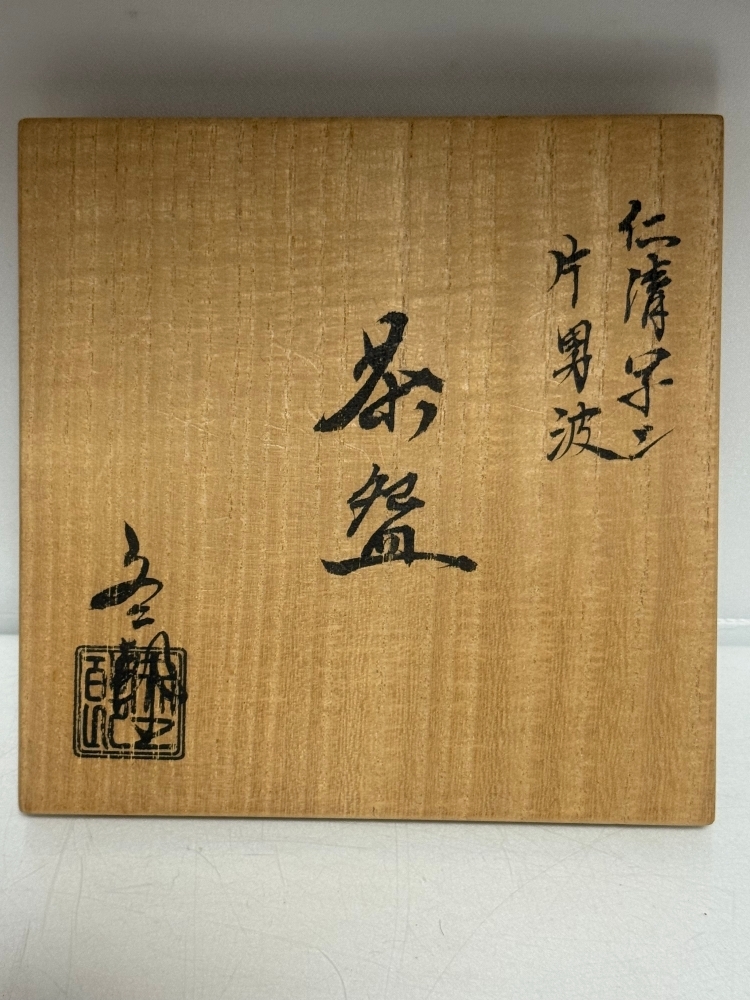 仁清写シ
片男波
茶盌
冬